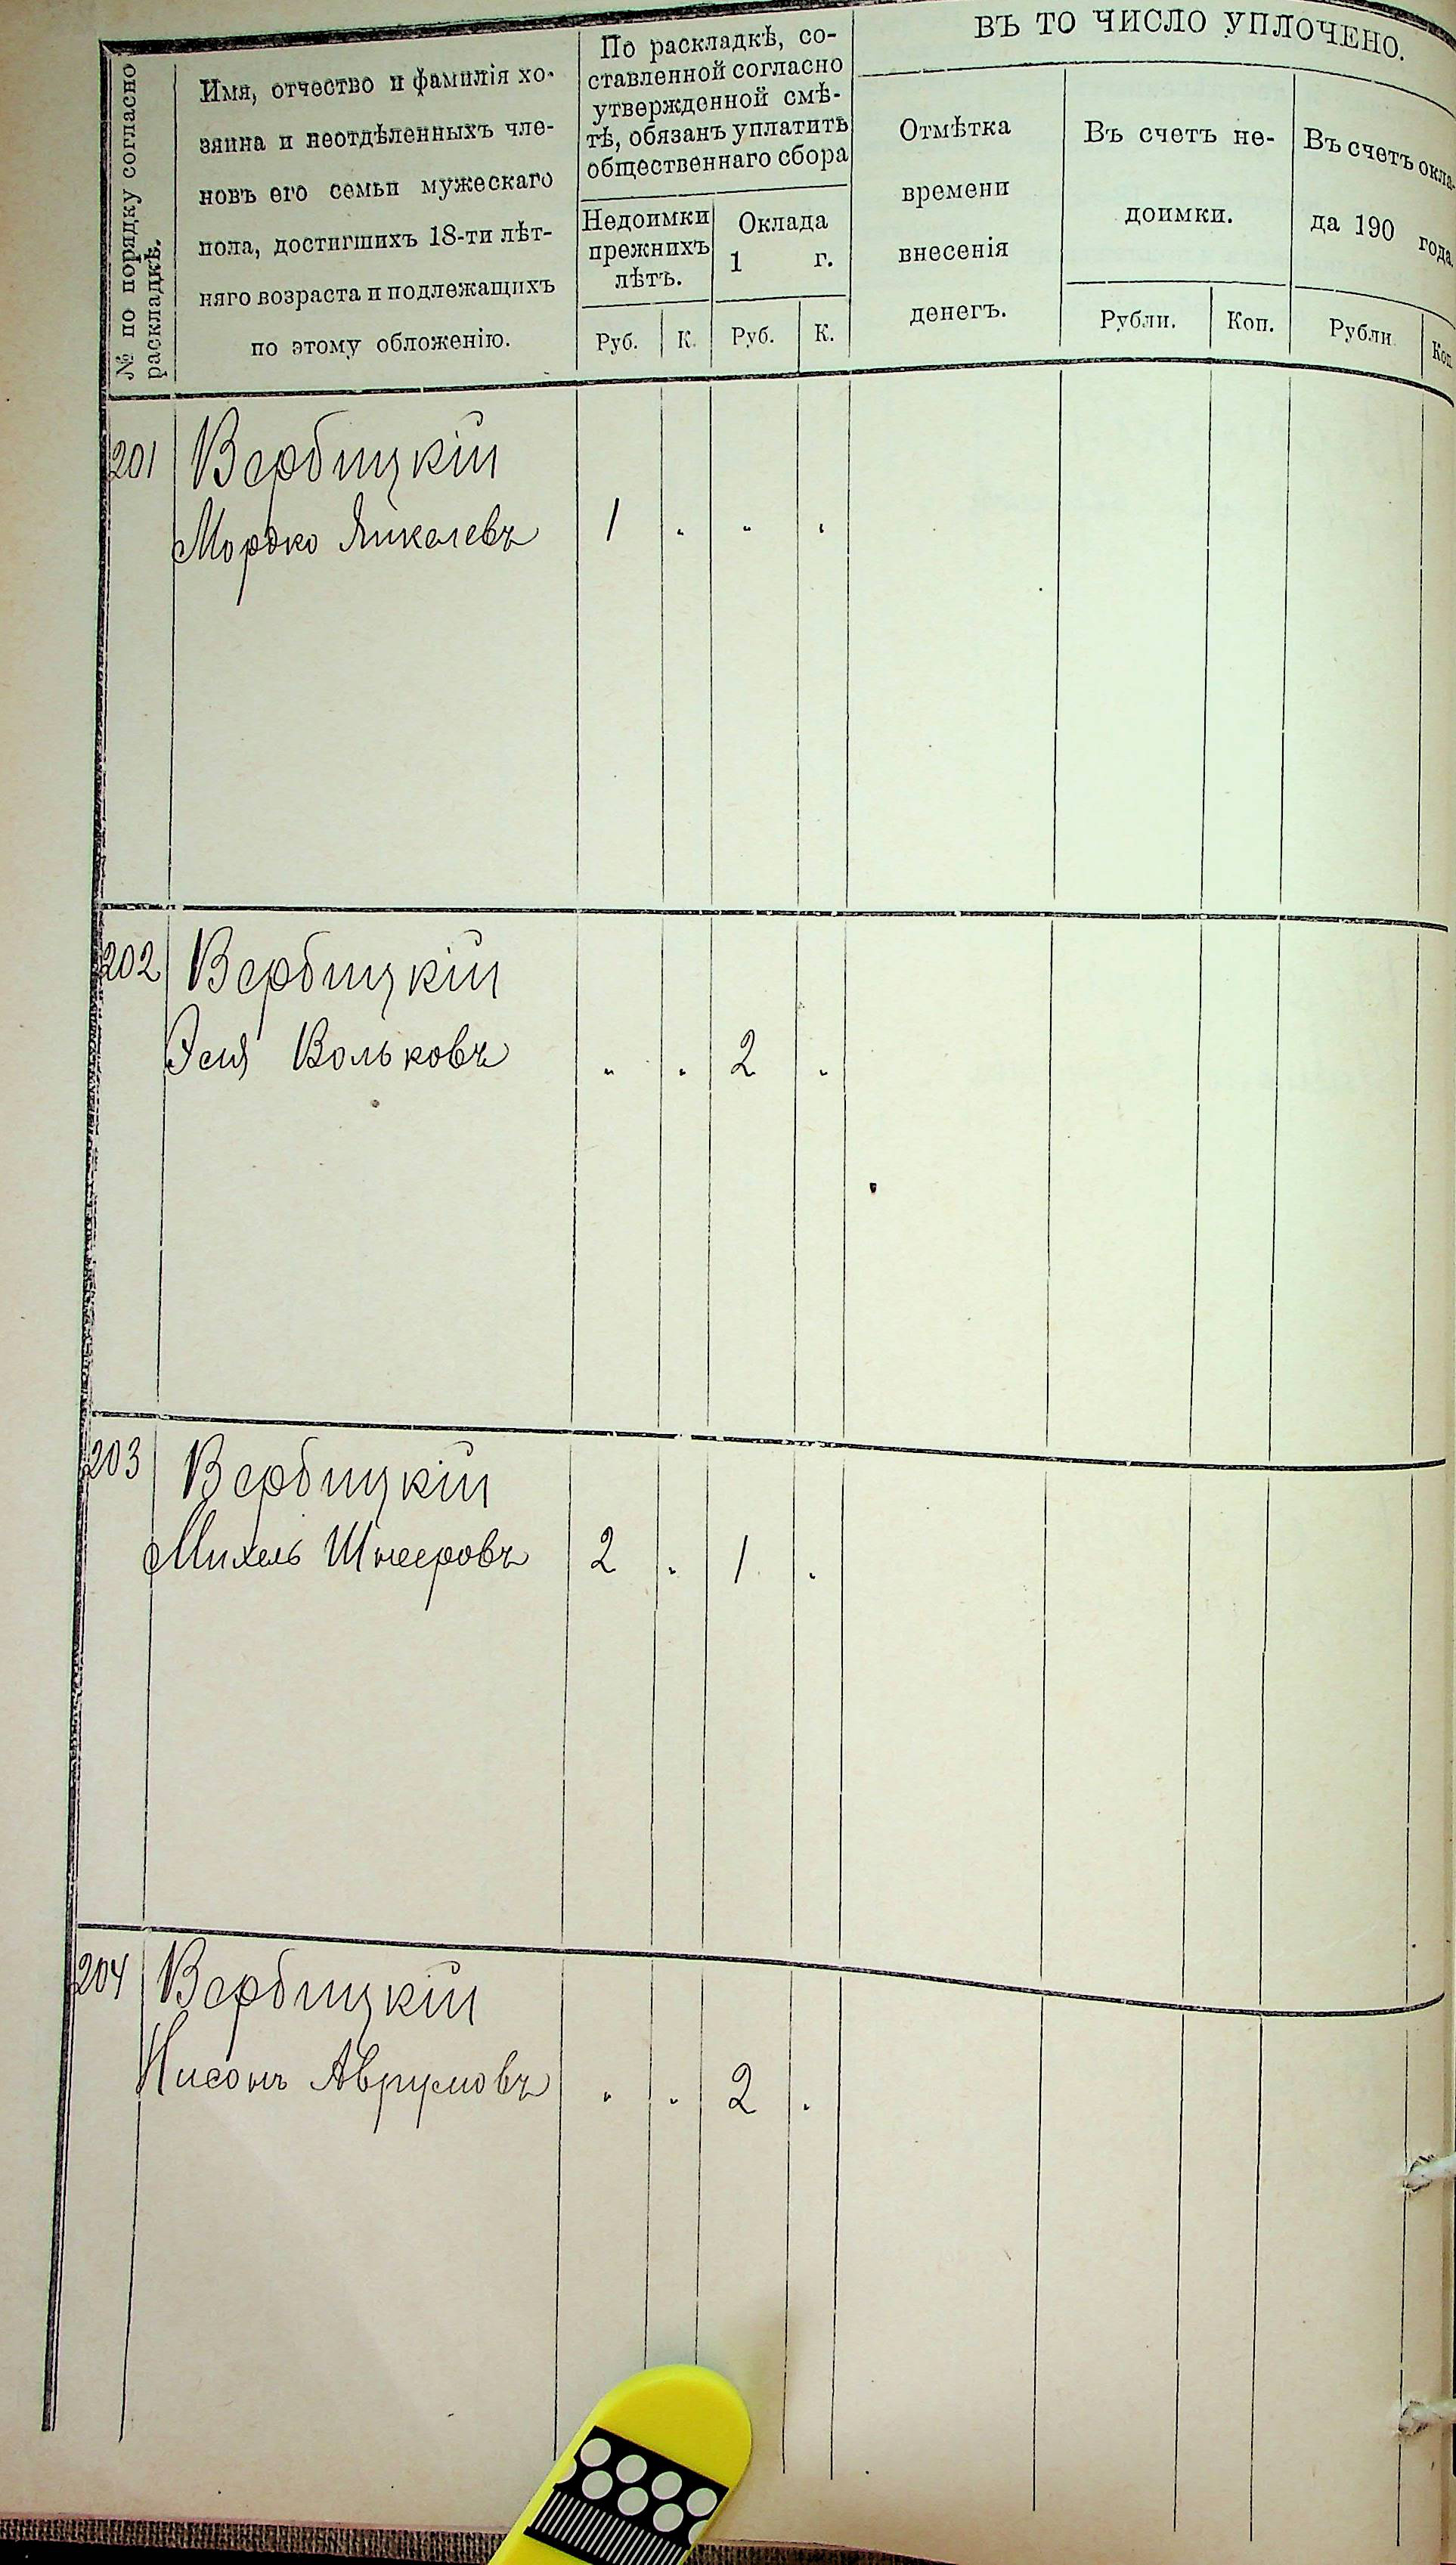 № по порядку согласно
раскладкѣ.
Имя, отчество и фамилія хо-
зяина и неотдѣленныхъ чле-
новъ его семьи мужескаго
пола, достигшихъ 18-ти лѣт-
няго возраста и подлежащихъ
по этому обложенію.
По раскладкѣ, со-
ставленной согласно
утвержденной смѣ-
тѣ, обязанъ уплатить
общественнаго сбора
Недоимки
прежнихъ
лѣтъ.
Руб. К.
Оклада
1 г.
Руб. К.
ВЪ ТО ЧИСЛО УПЛОЧЕНО.
Отмѣтка
времени
внесенія
денегъ.
Въ счетъ не-
доимки.
Рубли. Коп.
Въ счетъ окла-
да 190 года.
Рубли. Коп.
201 Вербицкій
Мордко Янкелевъ 1 . „ .
202 Вербицкій
Эля Вольковъ „ . 2 .
203 Вербицкій
Михель Шнееровъ 2 . 1 .
204 Вербицкій
Нисонъ Аврумовъ „ . 2 .